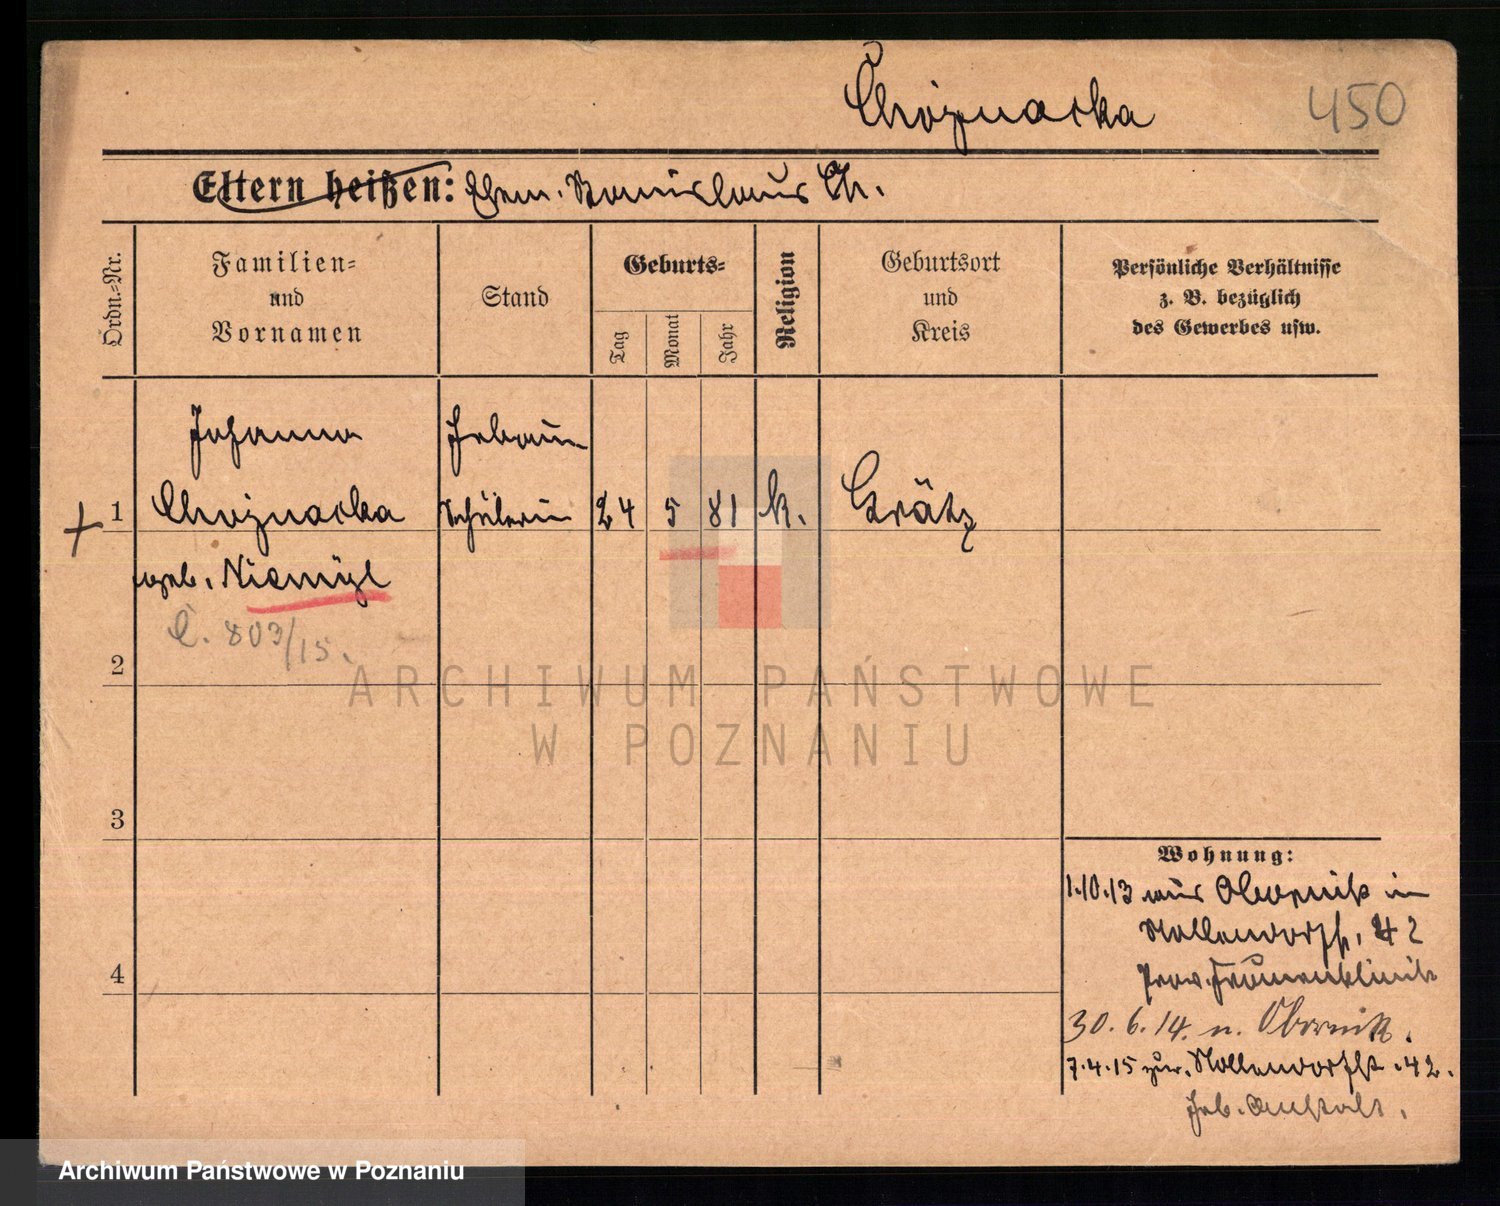 Chojnacka
450
Eltern heißen: Ehem. Stanislaus Ch.
Ordn.-Nr.
Familien-
und
Vornamen
Stand
Geburts-
Tag
Monat
Jahr
Religion
Geburtsort
und
Kreis
Persönliche Verhältnisse
z. B. bezüglich
des Gewerbes usw.
Johanna Hebam-
1 Chojnacka Schülerin 24 5 81 k. Grätz
geb.
C. 803/15.
2
ARCHIWUM PAŃSTWOWE
W POZNANIU
3
4
Wohnung:
1.10.13 aus Obornik in
Nollendorfstr. 42
Prov. Frauenklinik
30.6.14. n. Obornik.
7.4.15 zur. Nollendorfstr. 42.
Heb. Anstalt.
Archiwum Państwowe w Poznaniu